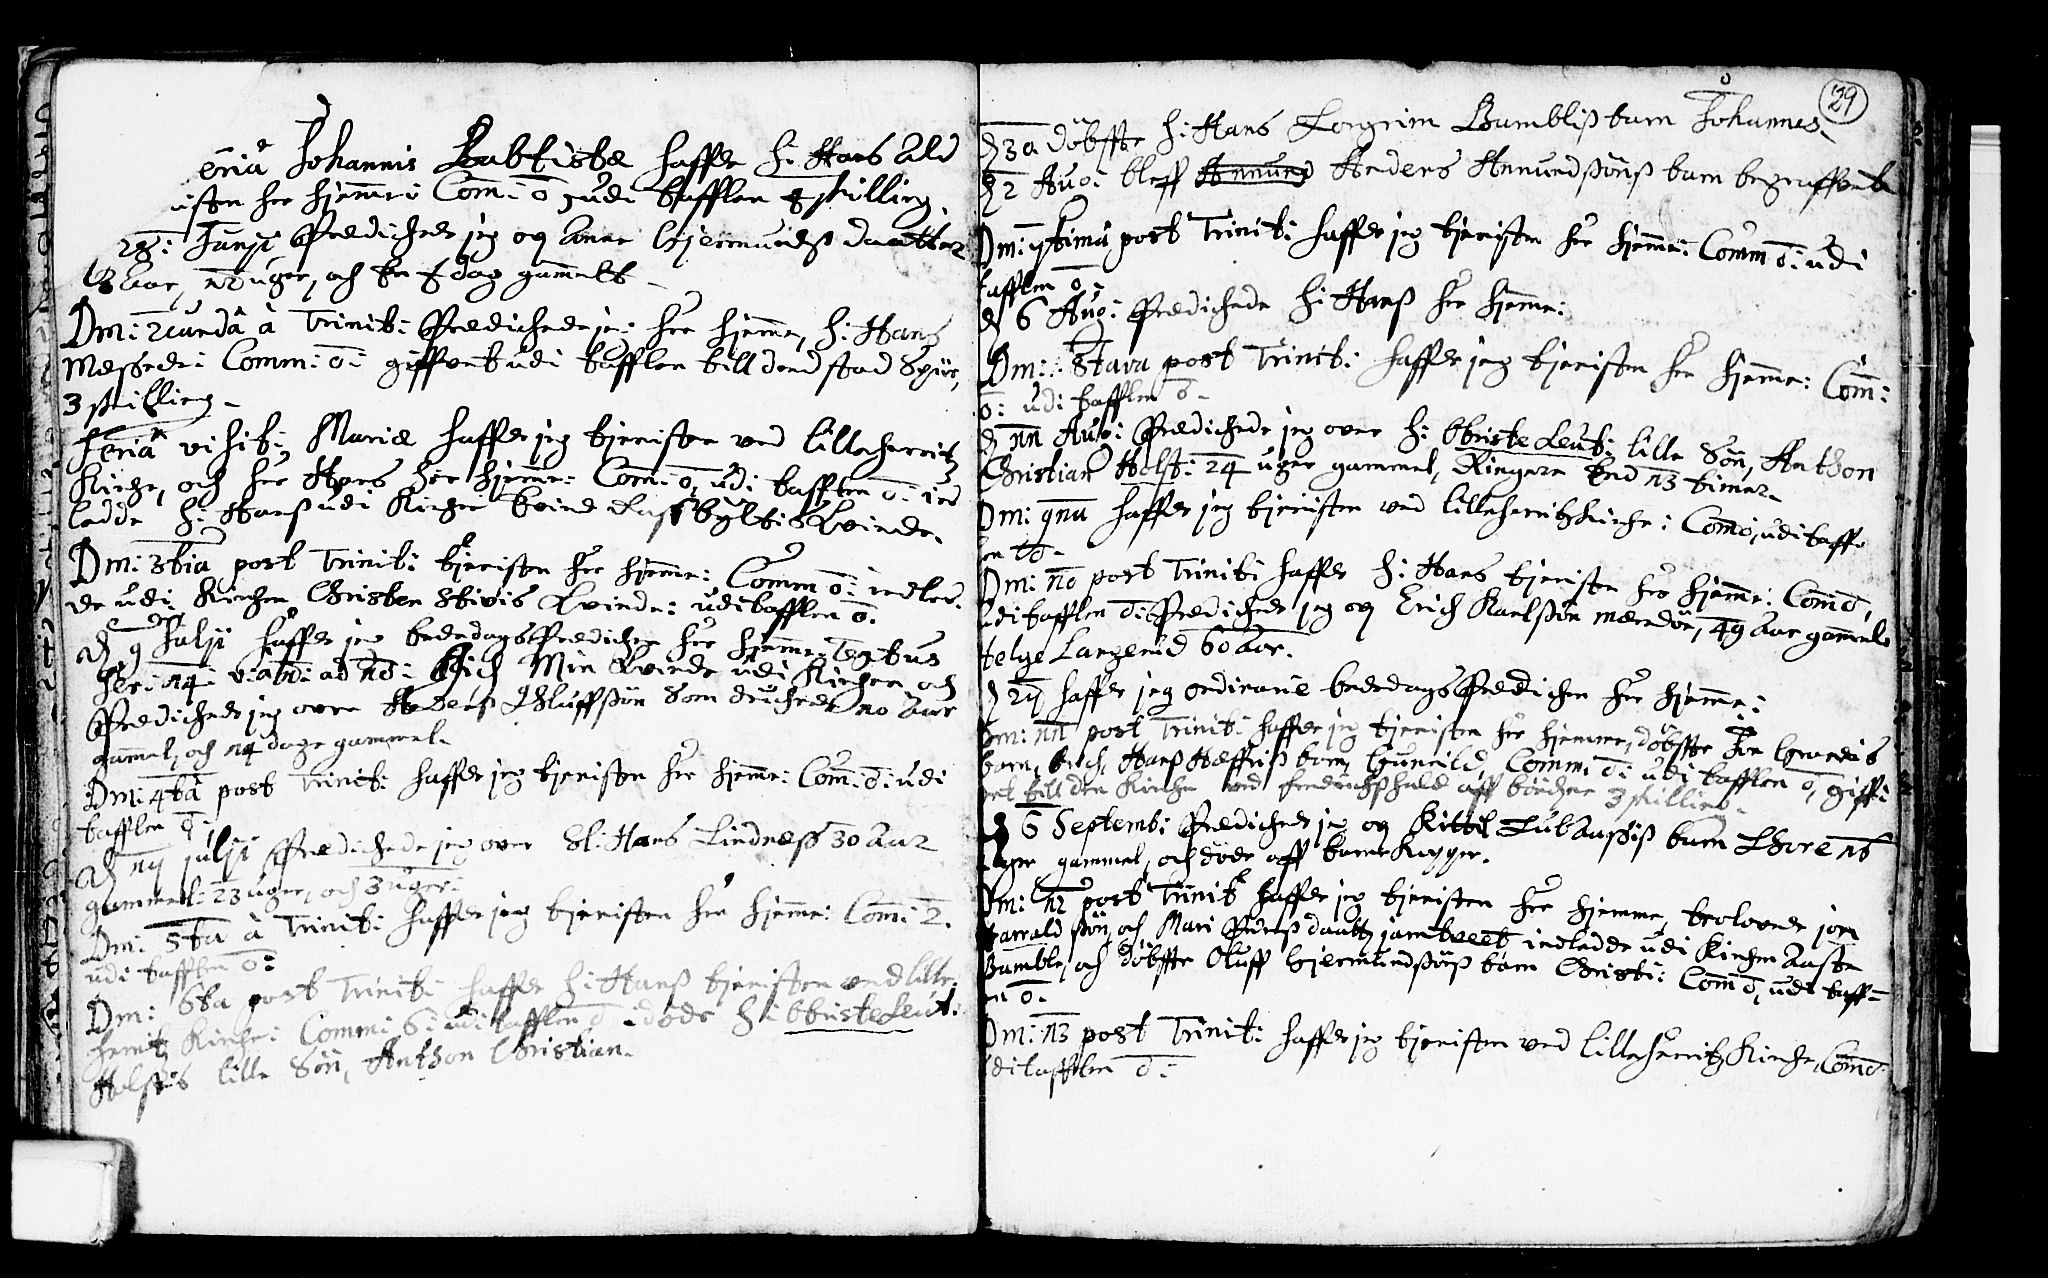 eria Johannis Babtistæ haffde h: Hans Ald
isten her hjemme: Com: o, udi tafflen 8 skilling.
28: Junji Predichede jeg og Anne Gjermundsß daatter
3 Aar, uger, och dag gammelt
Dm: 2cunda à Trinit: Predichede jeg her hjemme, h: Hans
Messede: Comm: o: giffvet udi tafflen till dend stad
3 skilling
Feria visit: Mariæ haffde jeg tjenisten ved lilleherritz
Kirche, och her Hans her hjemme: Com: o, udi tafflen o: ind
ledde h: Hanß udi Kirchen Kvinde.
Dm: 3tia post Trinit: tjenisten her hjemme: Comm o: indled-
de udi Kirchen Christen Kvinde: udi tafflen o.
d 9 Julji haffde jeg bededags Predichen her hjemme: Textus
Jer: 14: v: ad Gich Min Kvinde udi Kirchen och
Predichede jeg over Anders Oluffssön Som druchnede 20 Aar
gammel, och 14 dage gammel.
Dm: 4ta post Trinit: haffde jeg tjenisten her hjemme: Com: o: udi
tafflen o.
d 19 julji Predichede jeg over Sl: Hans Lindneß 30 Aar
gammel: 23 uger, och 3 uger:
Dm: 5ta à Trinit: haffde jeg tjenisten her hjemme: Com: 2.
udi tafflen o:
Dm: 6ta post Trinit: haffde h: Hanß tjenisten ved lille
herritz Kirche: Comm: 6: udi tafflen o: döde h: Obriste Leut:
Holstis lille Sön, Anthon Christian.
29
d 30 döbffte h: Hans Torgrim Bambliß barn Johannes.
d 2 Aug: bleff Anders Amundßönß barn begraffvet
Dm: 7tima post Trinit: haffde jeg tjenisten her hjemme: Comm o: udi
tafflen o-
d 6 Aug: Predichede h: Hanß her hjemme:
Dm: 8tava post Trinit: haffde jeg tjenisten her hjemme: Com:
o: udi tafflen o-
d 11 Aug: Predichede jeg over h: Obriste Leut: lille Sön, Anthon
Christian Holst: 24 uger gammel, Ringere End 13 timer.
Dm: 9na haffde jeg tjenisten ved lilleherritz Kirche: Com o, udi taffl-
en o-
Dm: 10 post Trinit: haffde h: Hans tjenisten her hjemme: Com o,
udi tafflen o: Predichede jeg og Erich Karlßön, 49 Aar gammel
Helge Langerud 60 Aar.
d 27 haffde jeg ordinarie bededags Predichen her hjemme:
Dm: 11 post Trinit: haffde jeg tjenisten her hjemme, döbffte
barn, och Hans barn Gunnild, Comm: o: udi tafflen o, giffv-
et till den Kirche ved fredrichßhald aff bönchene 3 skilling.
d 6 Septemb: Predichede jeg og Kittil barn Thore 16
uger gammel, och döde aff barne Kopper.
Dm: 12 post Trinit: haffde jeg tjenisten her hjemme, trolovede jon
Harrald ßön, och Mari Pedersß daatter jarntveet indledde udi Kirchen Aaste
Bamble, och döbffte Oluff Gjermundßönß barn Christi: Com o, udi taffl-
en o.
Dm: 13 post Trinit: haffde jeg tjenisten ved lilleherritz Kirche, Com o
udi tafflen o: